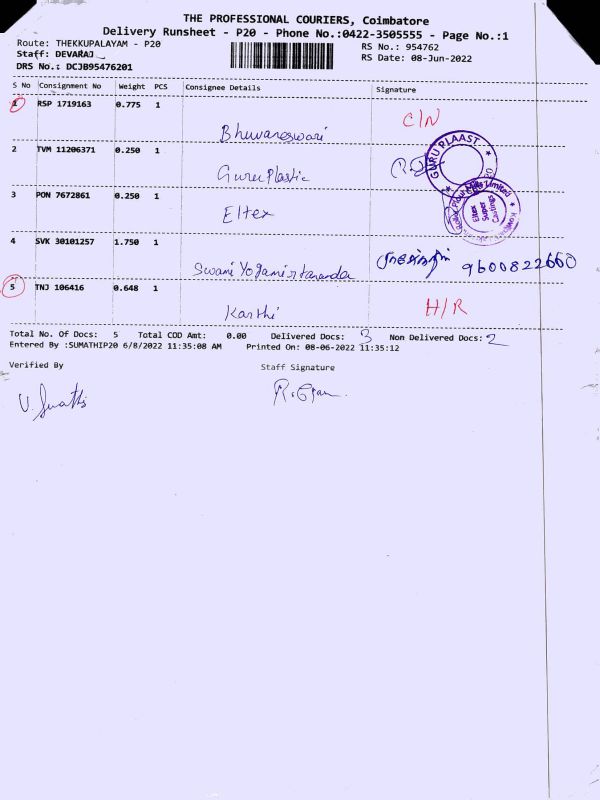 THE PROFESSIONAL COURIERS, Coimbatore
Delivery Runsheet - P20 - Phone No.:0422-3505555 - Page No.:1
Route: THEKKUPALAYAM - P20
RS No.: 954762
Staff: DEVARAJ
RS Date: 08-Jun-2022
DRS No.: DCJB95476201
S No Consignment No Weight PCS Consignee Details Signature
1 RSP 1719163 0.775 1
Bhuvaneswari C/N
2 TVM 11206371 0.250 1
Guru Plastic
GURU PLAAST
3 PON 7672861 0.250 1
Eltex
Eltex Super Castings Limited
4 SVK 30101257 1.750 1
Swami Yogamirtananda 9600822660
5 TNJ 106416 0.648 1
Karthi H/R
Total No. Of Docs: 5 Total COD Amt: 0.00 Delivered Docs: 3 Non Delivered Docs: 2
Entered By :SUMATHIP20 6/8/2022 11:35:08 AM Printed On: 08-06-2022 11:35:12
Verified By Staff Signature